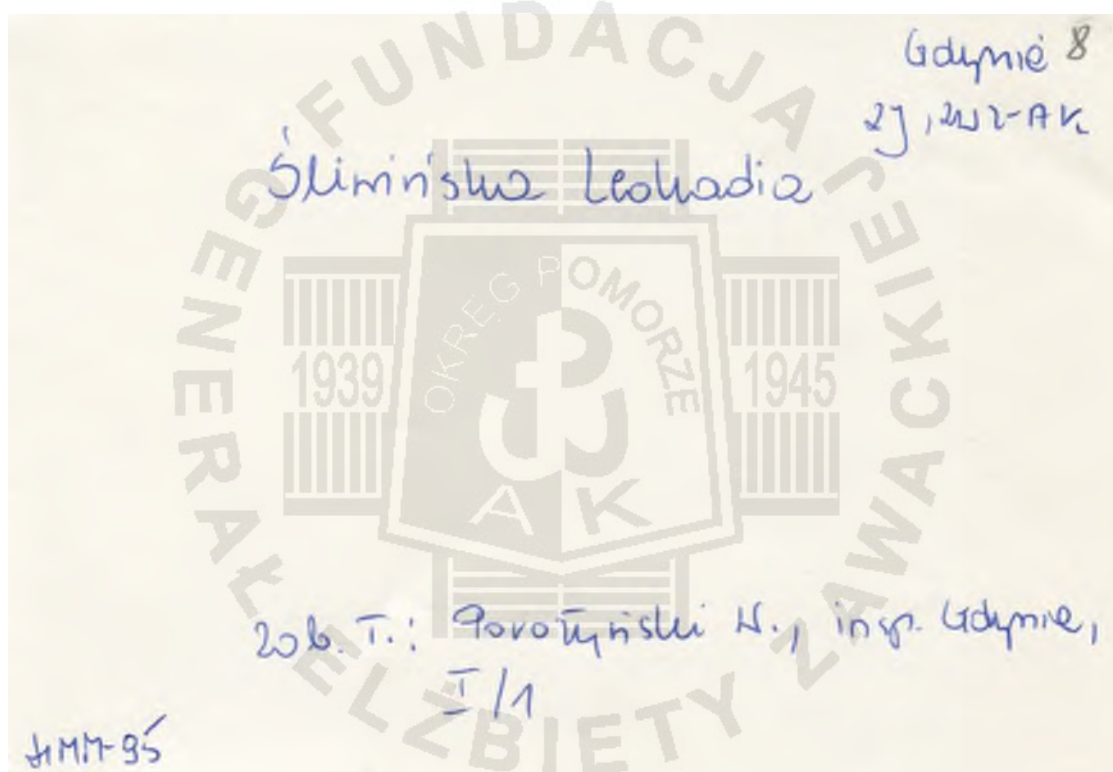 Gdynia 8
ZJ, ZWZ-AK
Ślimińska Leokadia
Zob. T.: Porożyński H., insp. Gdynia,
I/1
HMM-95
FUNDACJA
GENERAŁ ELŻBIETY ZAWACKIEJ
OKRĘG POMORZE
1939
1945
AK